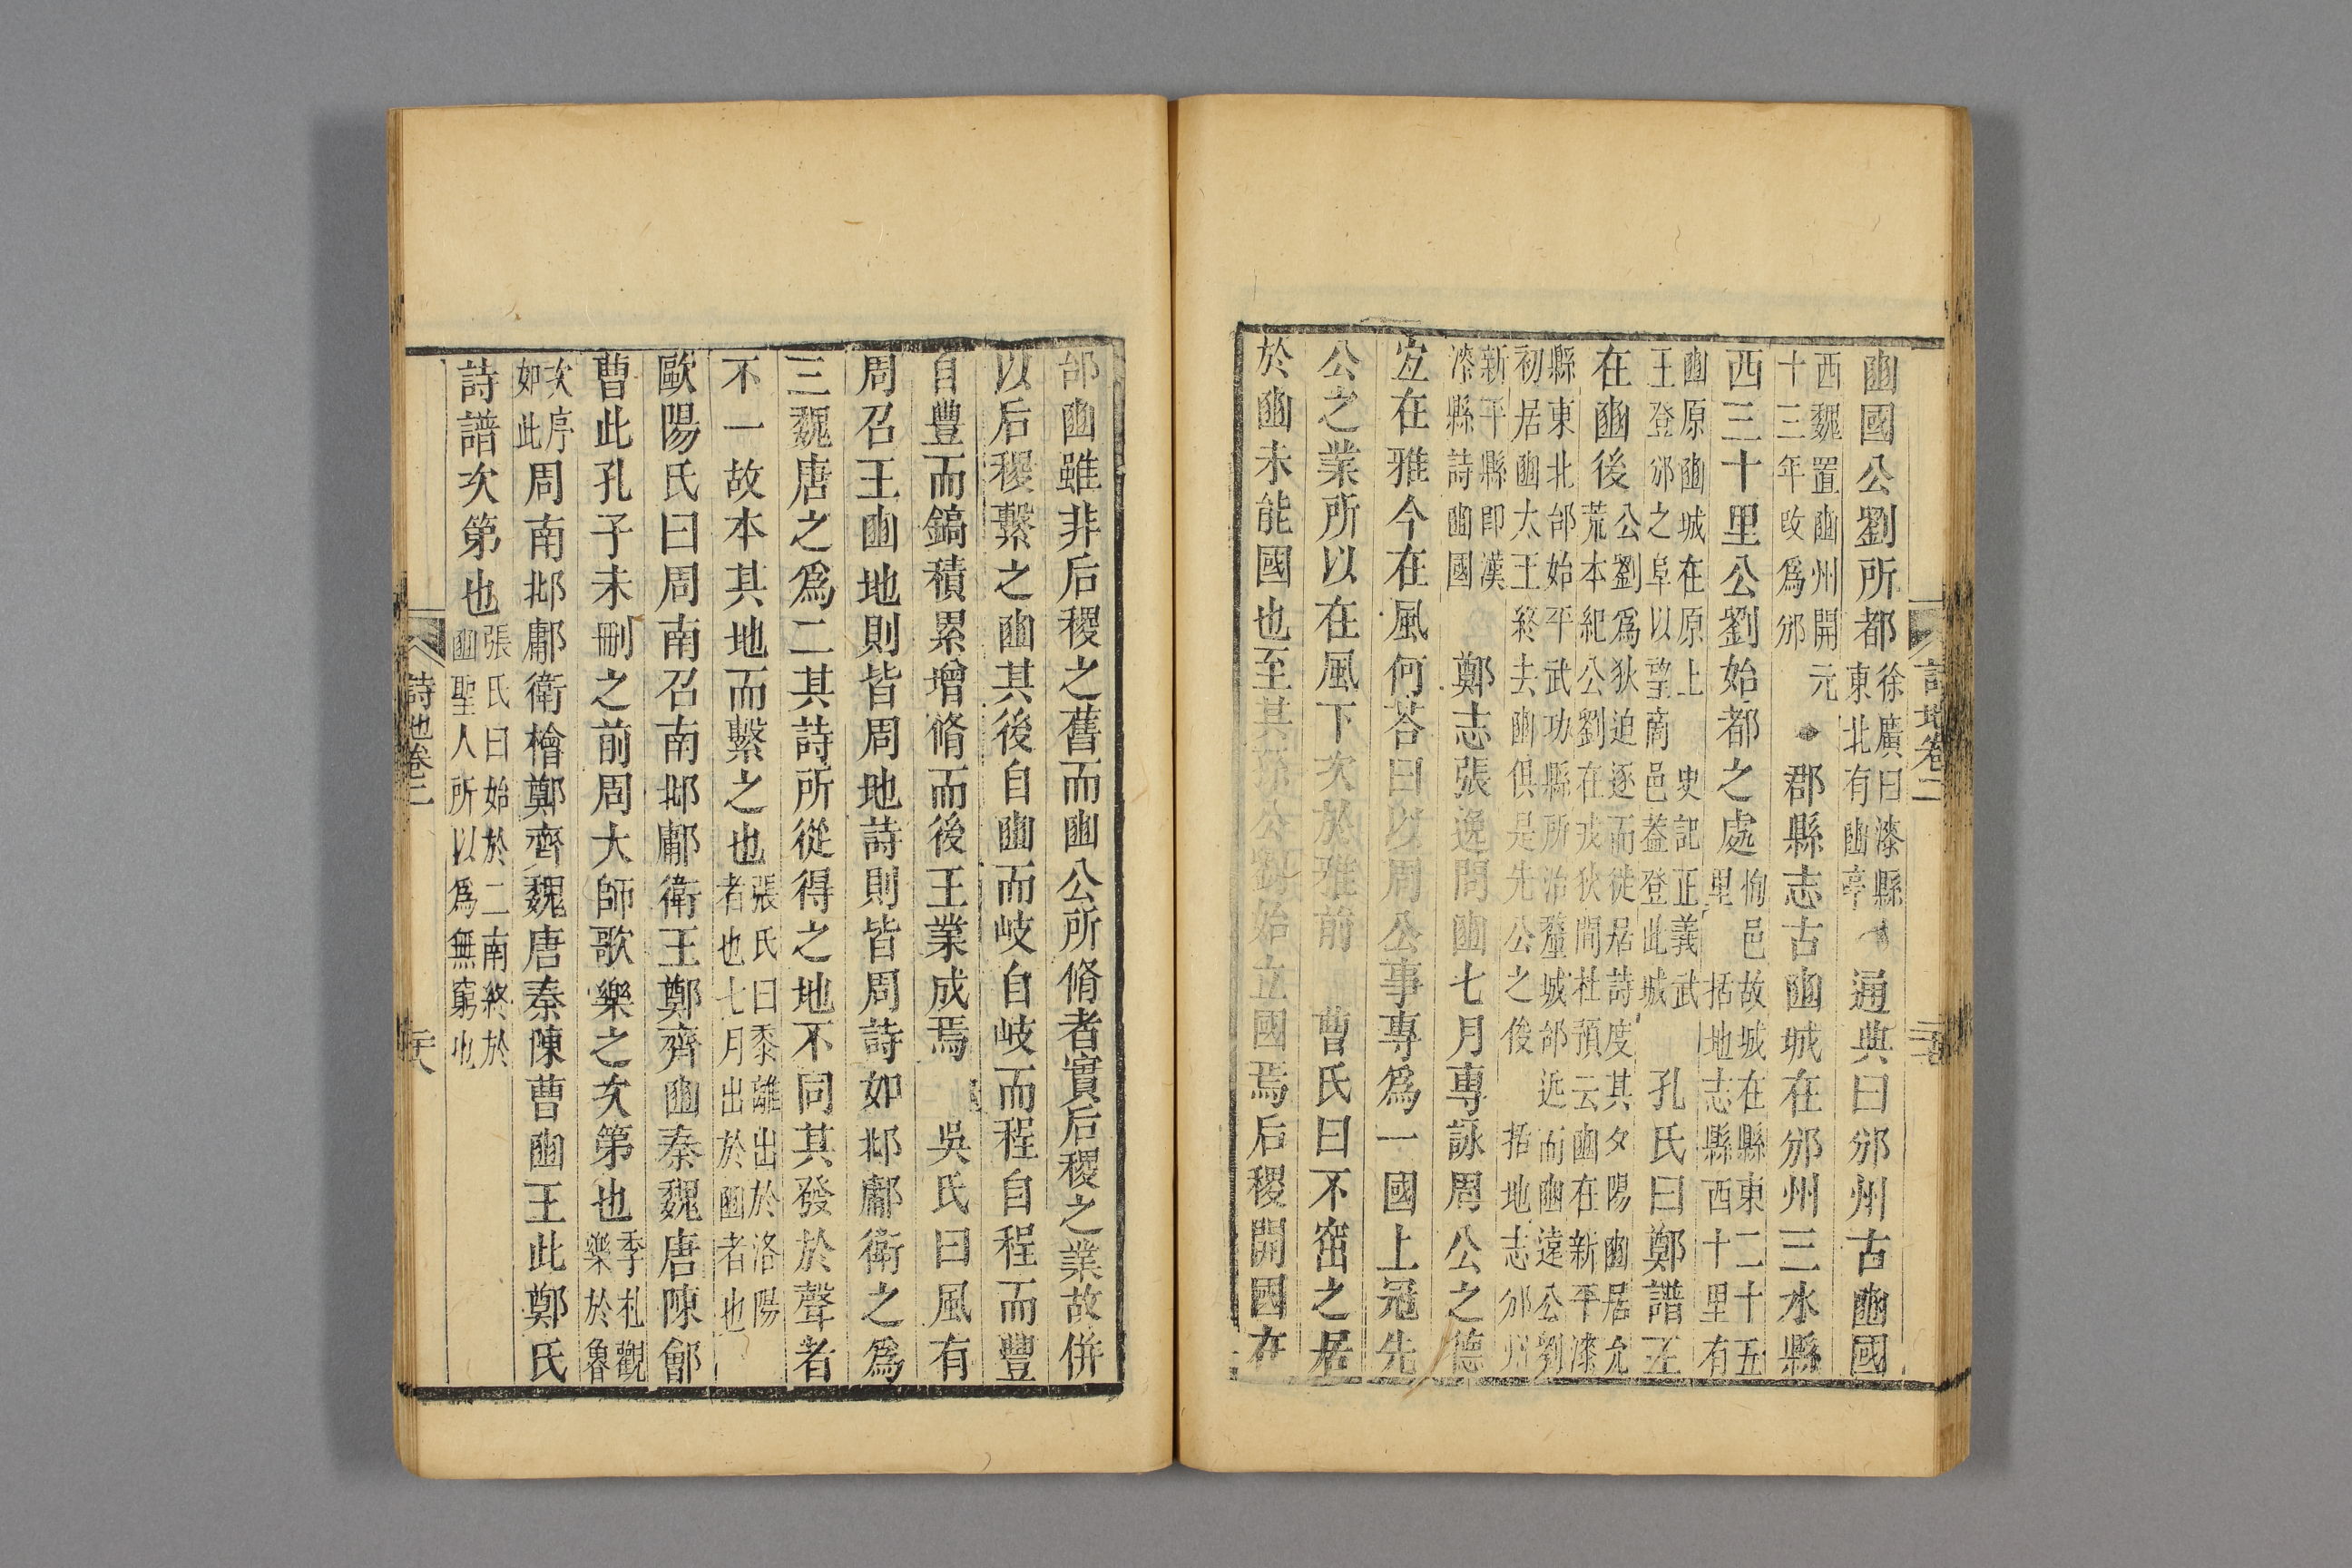 豳國公劉所都徐廣曰漆縣東北有豳亭通典曰邠州古豳國
西魏置豳州開元十三年改爲邠郡縣志古豳城在邠州三水縣
西三十里公劉始都之處栒邑故城在縣東二十五里括地志縣西十里有
豳原豳城在原上史記正義武王登邠之阜以望商邑蓋登此城孔氏曰鄭譜王
在豳後公劉爲狄迫逐而徙居詩度其夕陽豳居允荒本紀公劉在戎狄間杜預云豳在新平漆
縣東北邰始平武功縣所治釐城邰近而豳遠公劉初居豳大王終去豳俱是先公之俊括地志邠州
新平縣即漢漆縣詩豳國鄭志張逸問豳七月專詠周公之德
宐在雅今在風何荅曰以周公事專爲一國上冠先
公之業所以在風下次於雅前曹氏曰不窋之居
於豳未能國也至其孫公劉始立國焉后稷開國在
詩地卷二
邰豳雖非后稷之舊而豳公所脩者實后稷之業故併
以后稷繫之豳其後自豳而岐自岐而程自程而豐
自豐而鎬積累增脩而後王業成焉吳氏曰風有
周召王豳地則皆周地詩則皆周詩如邶鄘衛之爲
三魏唐之爲二其詩所從得之地不同其發於聲者
不一故本其地而繫之也張氏曰黍離出於洛陽者也七月出於豳者也
歐陽氏曰周南召南邶鄘衛王鄭齊豳秦魏唐陳鄶
曹此孔子未刪之前周大師歌樂之次第也季札觀樂於魯
次序如此周南邶鄘衛檜鄭齊魏唐秦陳曹豳王此鄭氏
詩譜次第也張氏曰始於二南終於豳聖人所以爲無窮也
詩地卷二 二十八